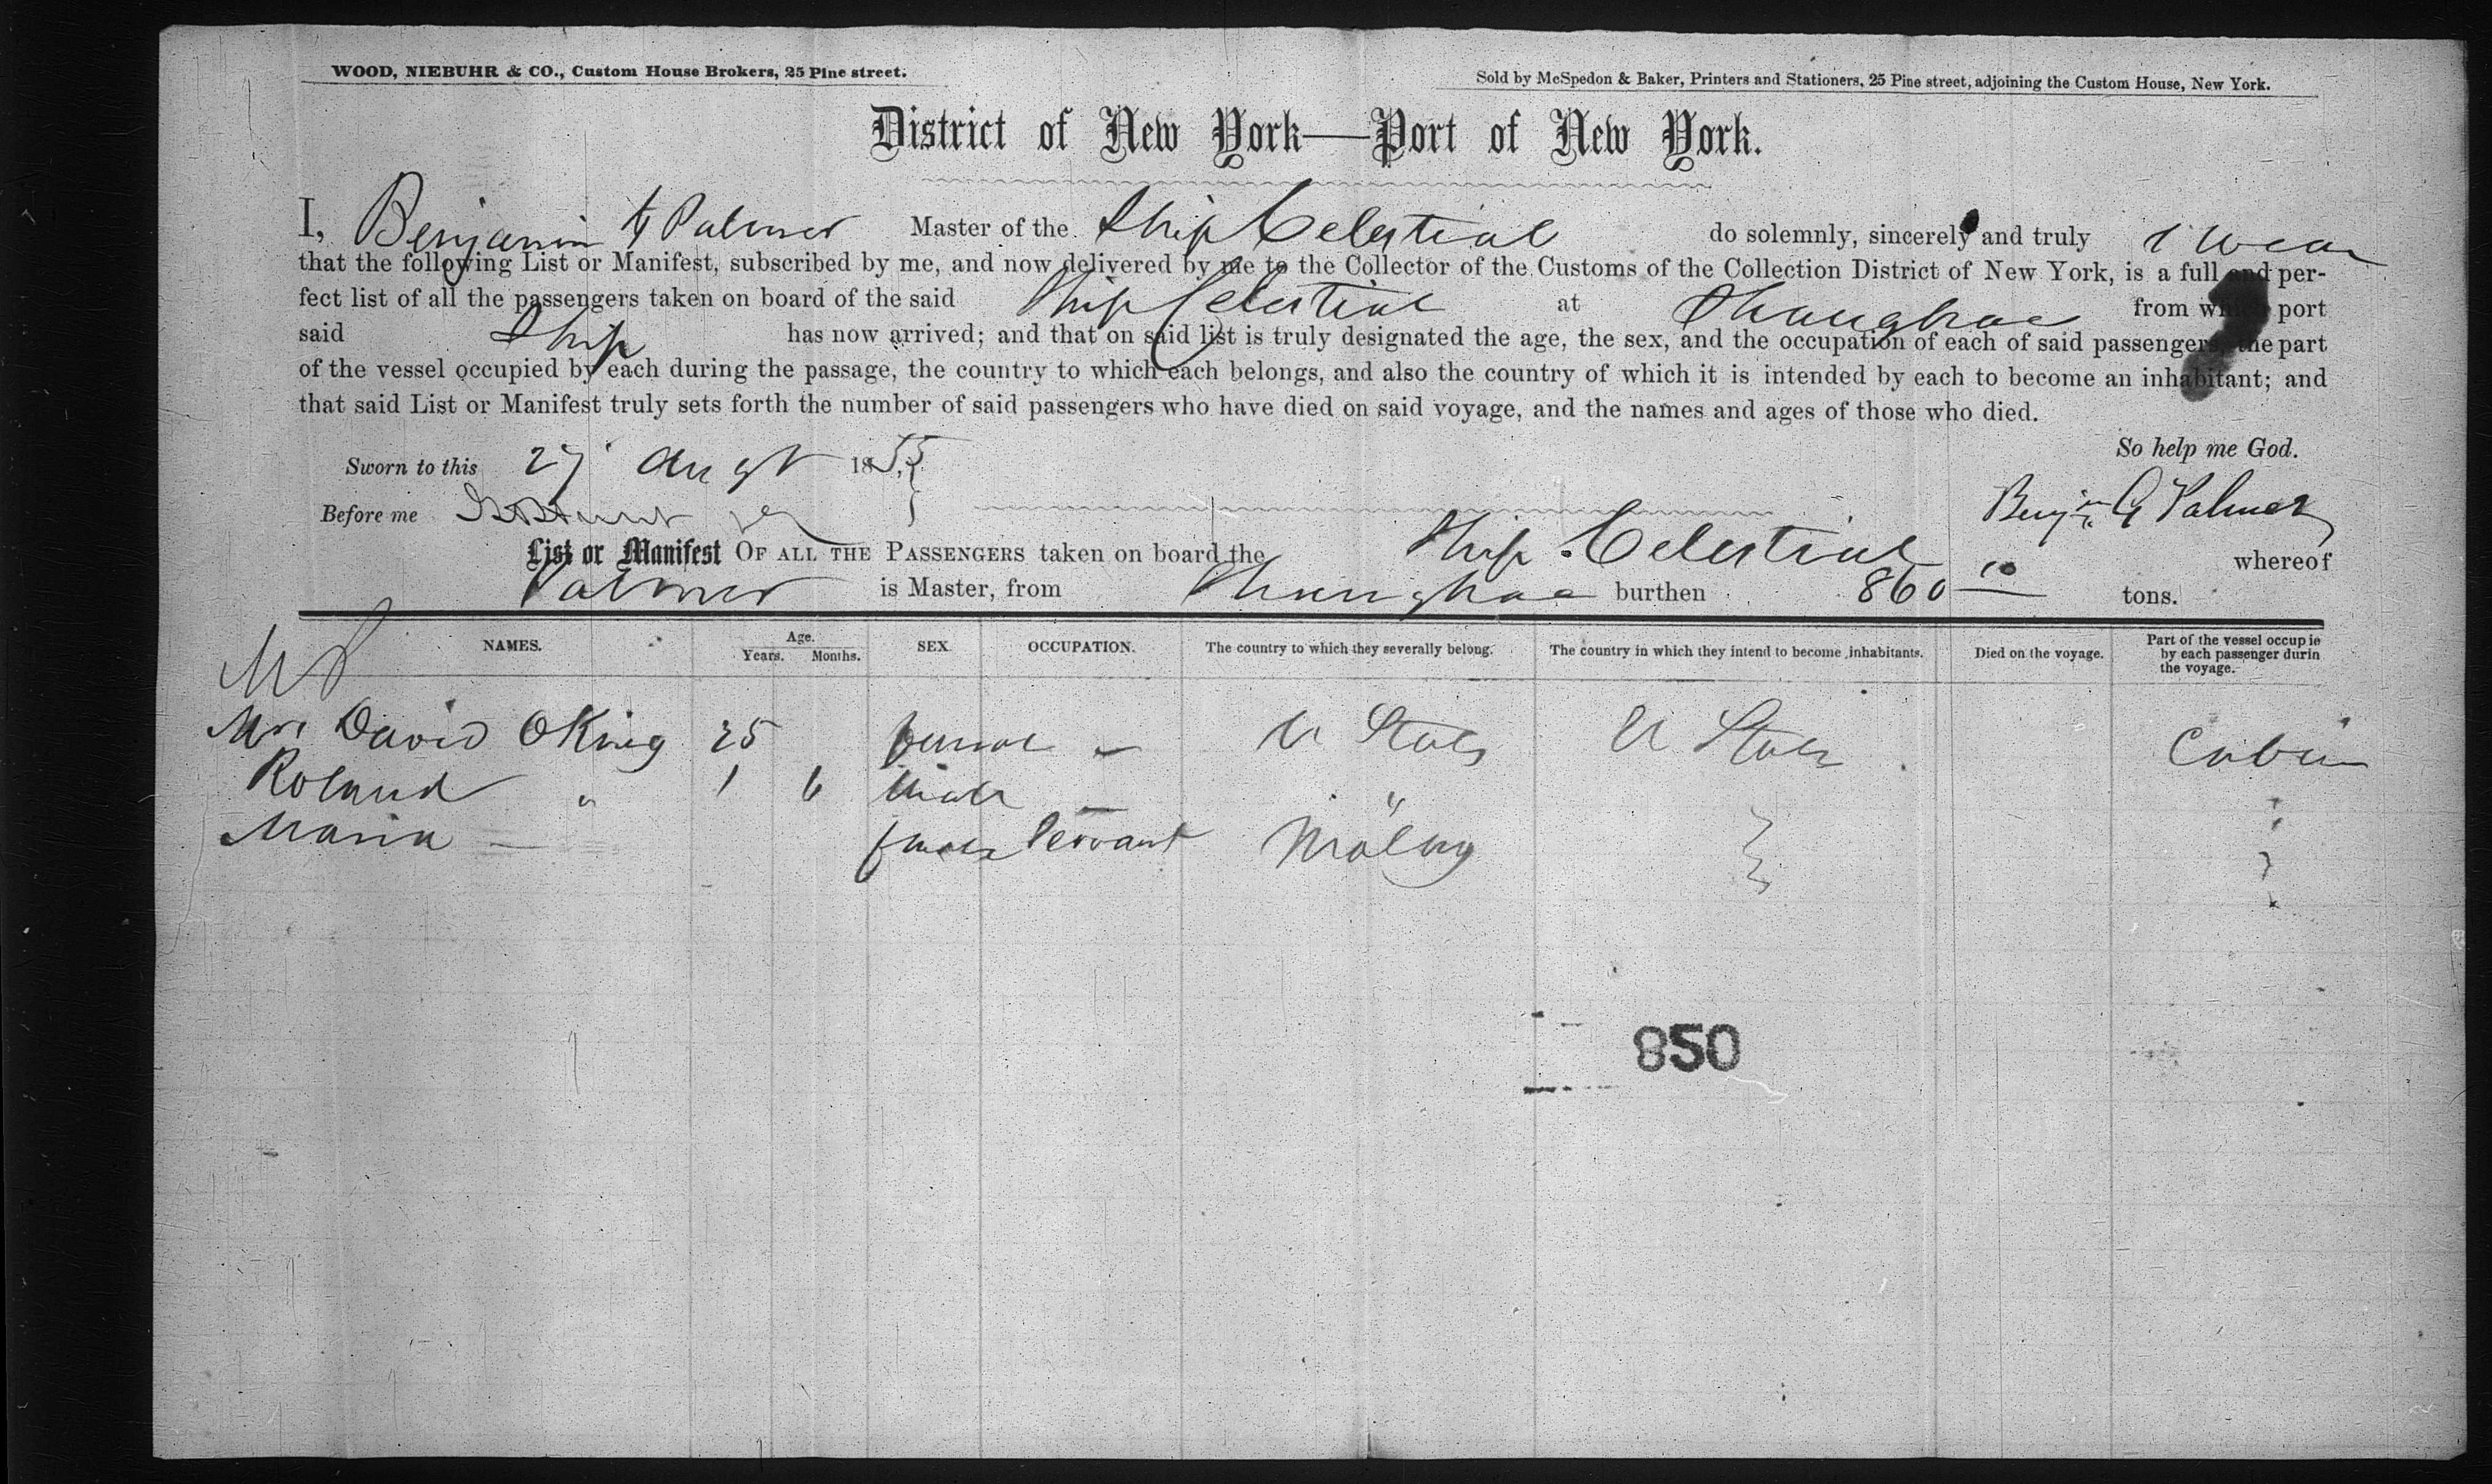 WOOD, NIEBUHR & CO., Custom House Brokers, 25 Pine street.
Sold by McSpedon & Baker, Printers and Stationers, 25 Pine street, adjoining the Custom House, New York.
District of New York—Port of New York.
I, Benjamin G Palmer Master of the Ship Celestial do solemnly, sincerely and truly swear
that the following List or Manifest, subscribed by me, and now delivered by me to the Collector of the Customs of the Collection District of New York, is a full and per-
fect list of all the passengers taken on board of the said Ship Celestial at Shanghae from which port
said Ship has now arrived; and that on said list is truly designated the age, the sex, and the occupation of each of said passengers, the part
of the vessel occupied by each during the passage, the country to which each belongs, and also the country of which it is intended by each to become an inhabitant; and
that said List or Manifest truly sets forth the number of said passengers who have died on said voyage, and the names and ages of those who died.
So help me God.
Sworn to this 27 Augt 1855
Before me
Benjn G Palmer
List or Manifest OF ALL THE PASSENGERS taken on board the Ship Celestial whereof
Palmer is Master, from Shanghae burthen 860 10 tons.
NAMES. Age. Years. Months. SEX. OCCUPATION. The country to which they severally belong. The country in which they intend to become inhabitants. Died on the voyage. Part of the vessel occupie by each passenger durin the voyage.
Mrs David O King 25 female — U States U States Cabin
Roland " 1 6 Male — "
Maria — female Servant Malay
850